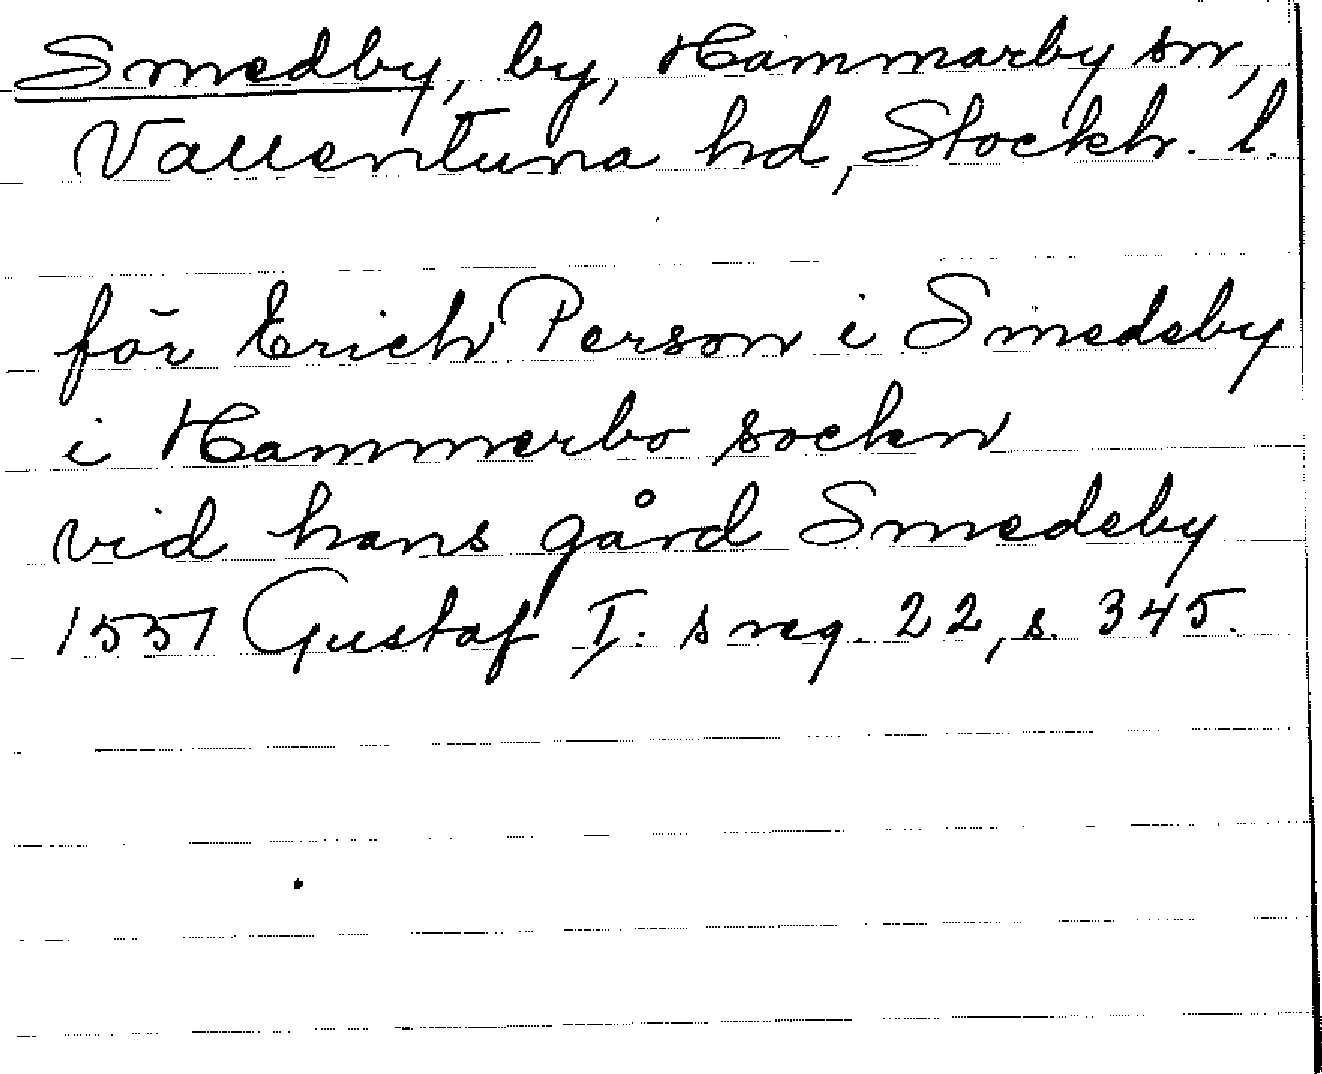 Smedby, by, Hammarby sn,
Vallentuna hd, Stockh. l.
för Erich Person i Smedeby
i Hammerbo sockn
vid hans gård Smedeby
1551 Gustaf I:s reg. 22, s. 345.